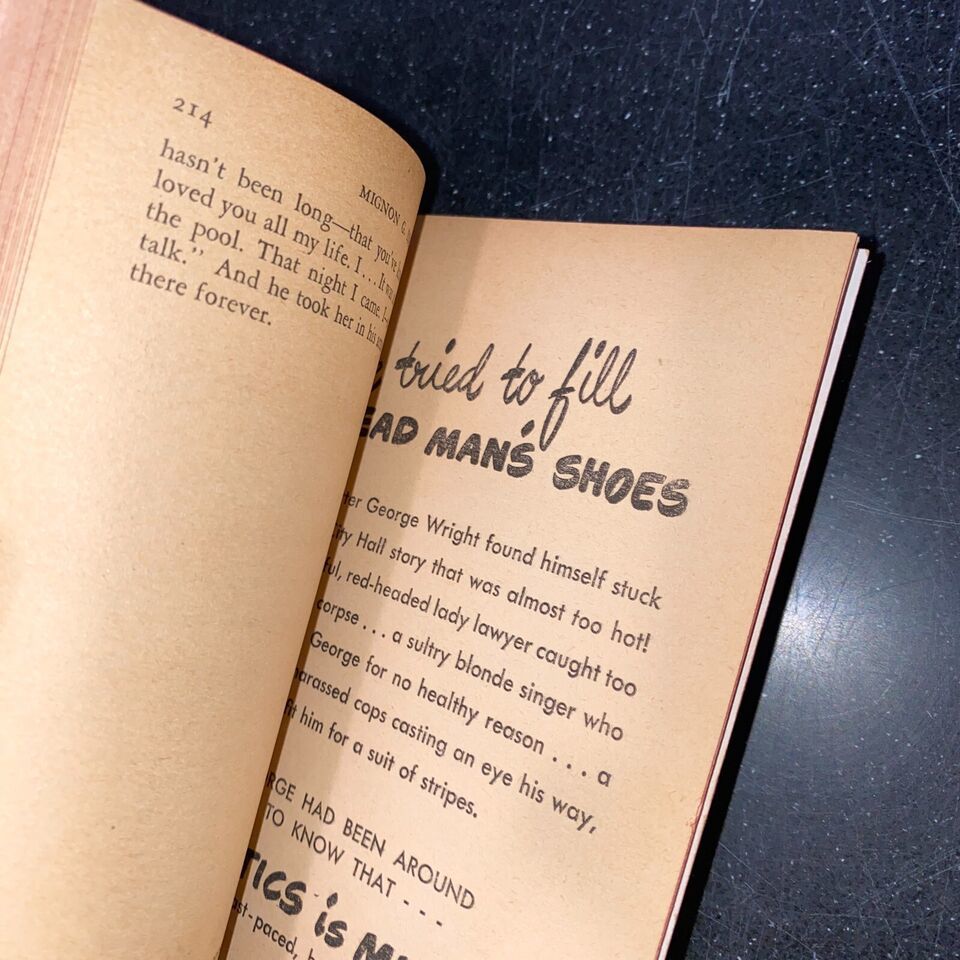 214
MIGNON G.
hasn't been long—that you've
loved you all my life. I . . . It was
the pool. That night I came. I—
talk." And he took her in his
there forever.
tried to fill
EAD MAN'S SHOES
ter George Wright found himself stuck
ity Hall story that was almost too hot!
ful, red-headed lady lawyer caught too
corpse . . . a sultry blonde singer who
George for no healthy reason . . . . a
arassed cops casting an eye his way,
fit him for a suit of stripes.
RGE HAD BEEN AROUND
TO KNOW THAT - - -
TICS is M
ast-paced, h